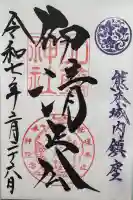 熊本城内鎮座
仰清正公
加藤
神社
令和七年二月二八日